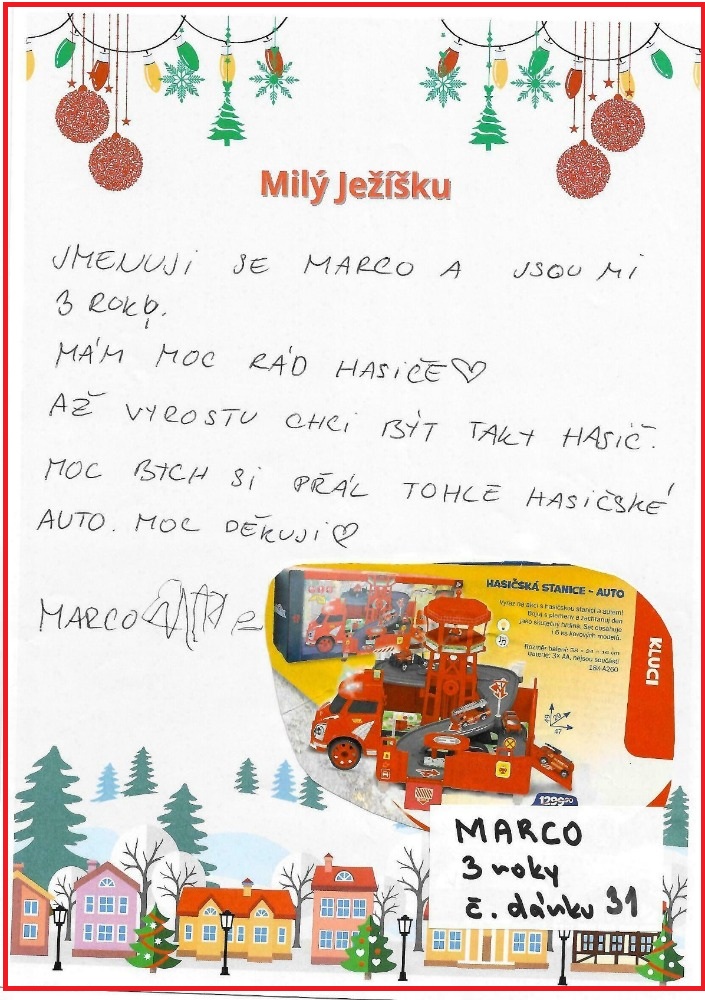 Milý Ježíšku
JMENUJI SE MARCO A JSOU MI
3 ROKY.
MÁM MOC RÁD HASIČE♡
AŽ VYROSTU CHCI BÝT TAKY HASIČ.
MOC BYCH SI PŘÁL TOHLE HASIČSKÉ
AUTO. MOC DĚKUJI♡
MARCO
HASIČSKÁ STANICE - AUTO
KLUCI
1299,90
MARCO
3 roky
č. dárku 31